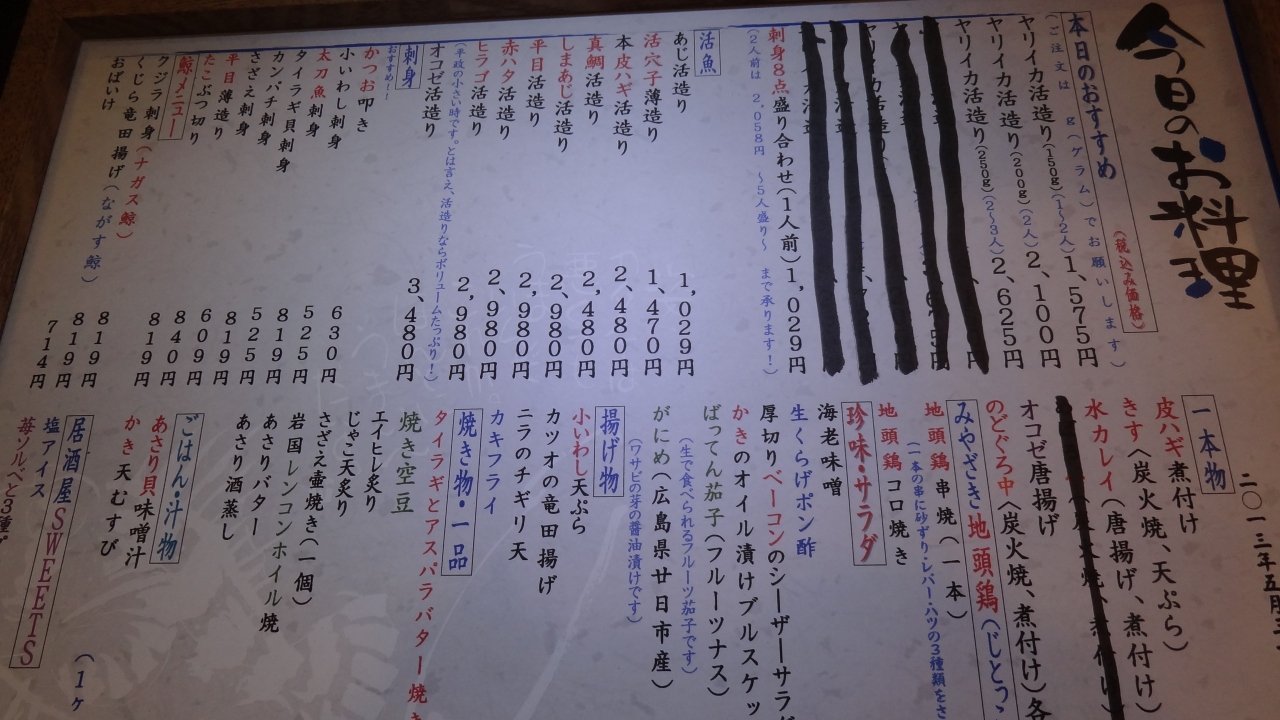 今日のお料理
(税込み価格)
二〇一三年五月
本日のおすすめ
(ご注文は g(グラム)でお願いします)
ヤリイカ活造り(150g)(1~2人)1,575円
ヤリイカ活造り(200g)(2人)2,100円
ヤリイカ活造り(250g)(2~3人)2,625円
刺身8点盛り合わせ(1人前)1,029円
(2人前は 2,058円 ~5人盛り~ まで承ります!)
活魚
あじ活造り 1,029円
活穴子薄造り 1,470円
本皮ハギ活造り 2,480円
真鯛活造り 2,480円
しまあじ活造り 2,980円
平目活造り 2,980円
赤ハタ活造り 2,980円
ヒラゴ活造り 2,980円
(平政の小さい時です。とは言え、活造りならボリュームたっぷり!)
オコゼ活造り 3,480円
刺身
おすすめ!
かつお叩き 630円
小いわし刺身 525円
太刀魚刺身 819円
タイラギ貝刺身 525円
カンパチ刺身 819円
さざえ刺身 609円
平目薄造り 840円
たこぶつ切り 819円
鯨メニュー
クジラ刺身(ナガス鯨) 819円
くじら竜田揚げ(ながす鯨) 819円
おばいけ 714円
一本物
皮ハギ煮付け
きす(炭火焼、天ぷら)
水カレイ(唐揚げ、煮付け)
オコゼ唐揚げ
のどぐろ中(炭火焼、煮付け)各
みやざき地頭鶏(じとっ
(一本の串に砂ずり・レバー・ハツの3種類をさ
地頭鶏串焼(一本)
地頭鶏コロコロ焼き
珍味・サラダ
海老味噌
生くらげポン酢
厚切りベーコンのシーザーサラダ
かきのオイル漬けブルスケッ
ばってん茄子(フルーツナス)
(生で食べられるフルーツ茄子です)
がにめ(広島県廿日市産)
(ワサビの芽の醤油漬けです)
揚げ物
小いわし天ぷら
カツオの竜田揚げ
ニラのチギリ天
カキフライ
焼き物・一品
タイラギとアスパラバター焼き
焼き空豆
エイヒレ炙り
じゃこ天炙り
さざえ壷焼き(一個)
岩国レンコンホイル焼
あさりバター
あさり酒蒸し
ごはん・汁物
あさり貝味噌汁
かき天むすび
居酒屋SWEETS
(1ヶ
塩アイス
苺ソルベと3種